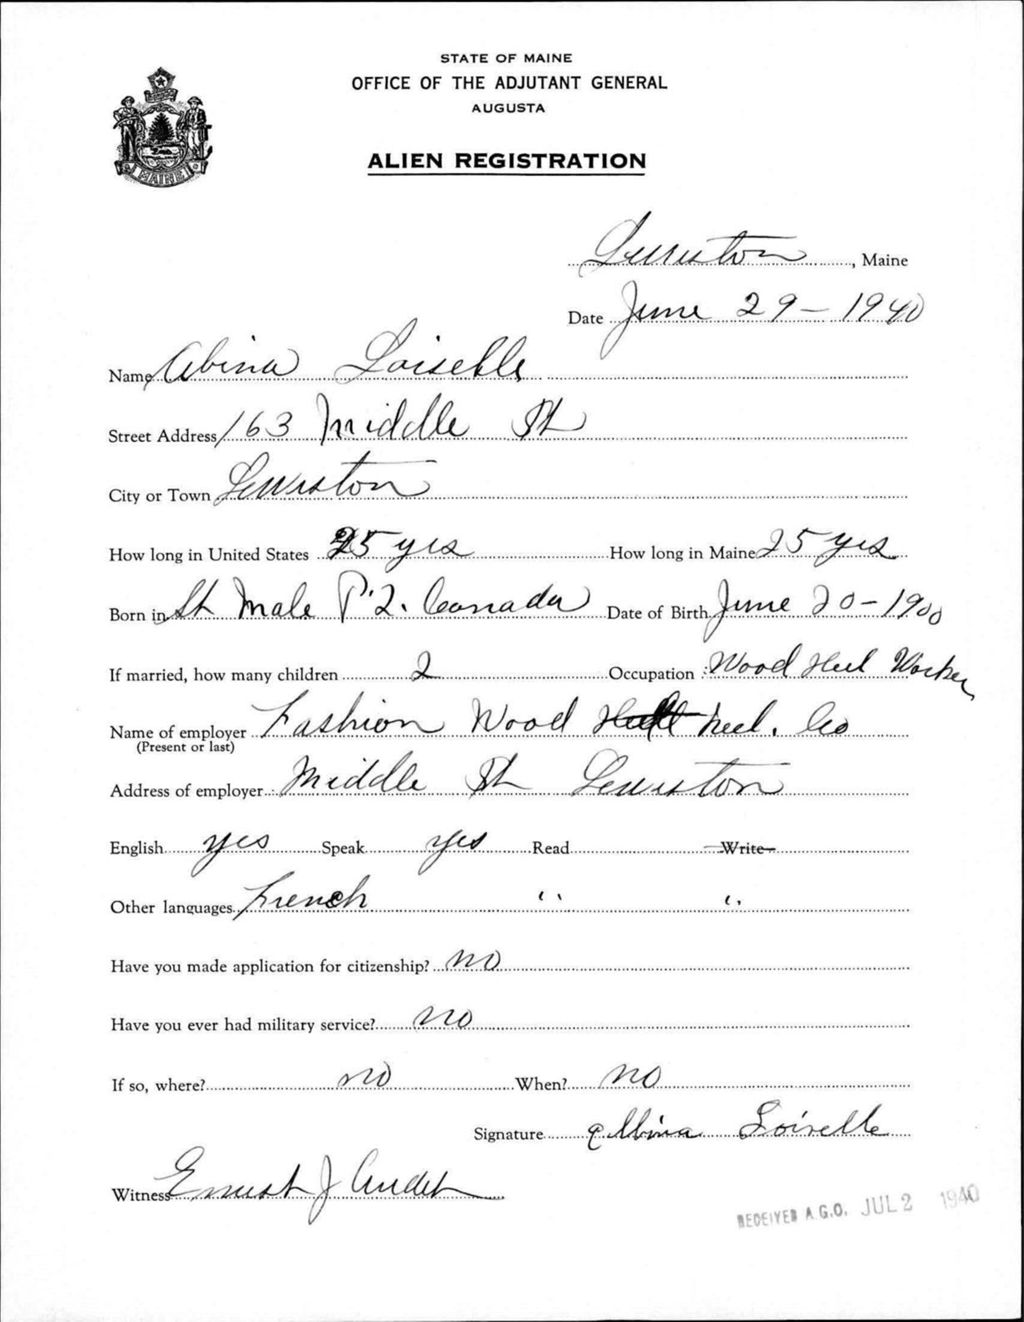 STATE OF MAINE
OFFICE OF THE ADJUTANT GENERAL
AUGUSTA
MAINE
ALIEN REGISTRATION
Lewiston, Maine
Date June 29 - 1940
Name Albina Loiselle
Street Address 163 Middle St
City or Town Lewiston
How long in United States 25 yrs How long in Maine 25 yrs
Born in St Male P.Q. Canada Date of Birth June 20 - 1900
If married, how many children 2 Occupation Wood Heel Worker
Name of employer Fashion Wood heel. Co
(Present or last)
Address of employer Middle St Lewiston
English yes Speak yes Read Write
Other languages French " "
Have you made application for citizenship? no
Have you ever had military service? no
If so, where? no When? no
Signature Albina Loiselle
Witness Ernest J Audet
RECEIVED A.G.O. JUL 2 1940